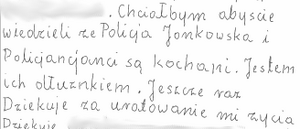 . Chciałbym abyście
wiedzieli że Policja Jonkowska i
Policjanćjanci są kochani. Jestem
ich dłużnikiem. Jeszcze raz
Dziekuje za uratowanie mi życia
Dziekuje